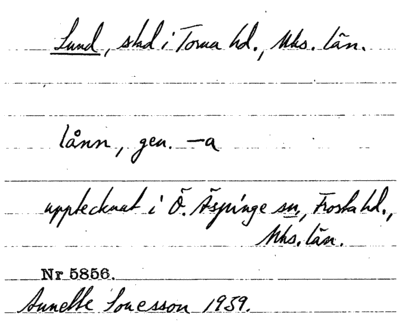 Lund, stad i Torna hd., Mhs. län.
lånn, gen. –a
upptecknat i Ö. Äspinge sn, Frosta hd.,
Mhs. län.
Nr 5856.
Annette Jonesson 1959.